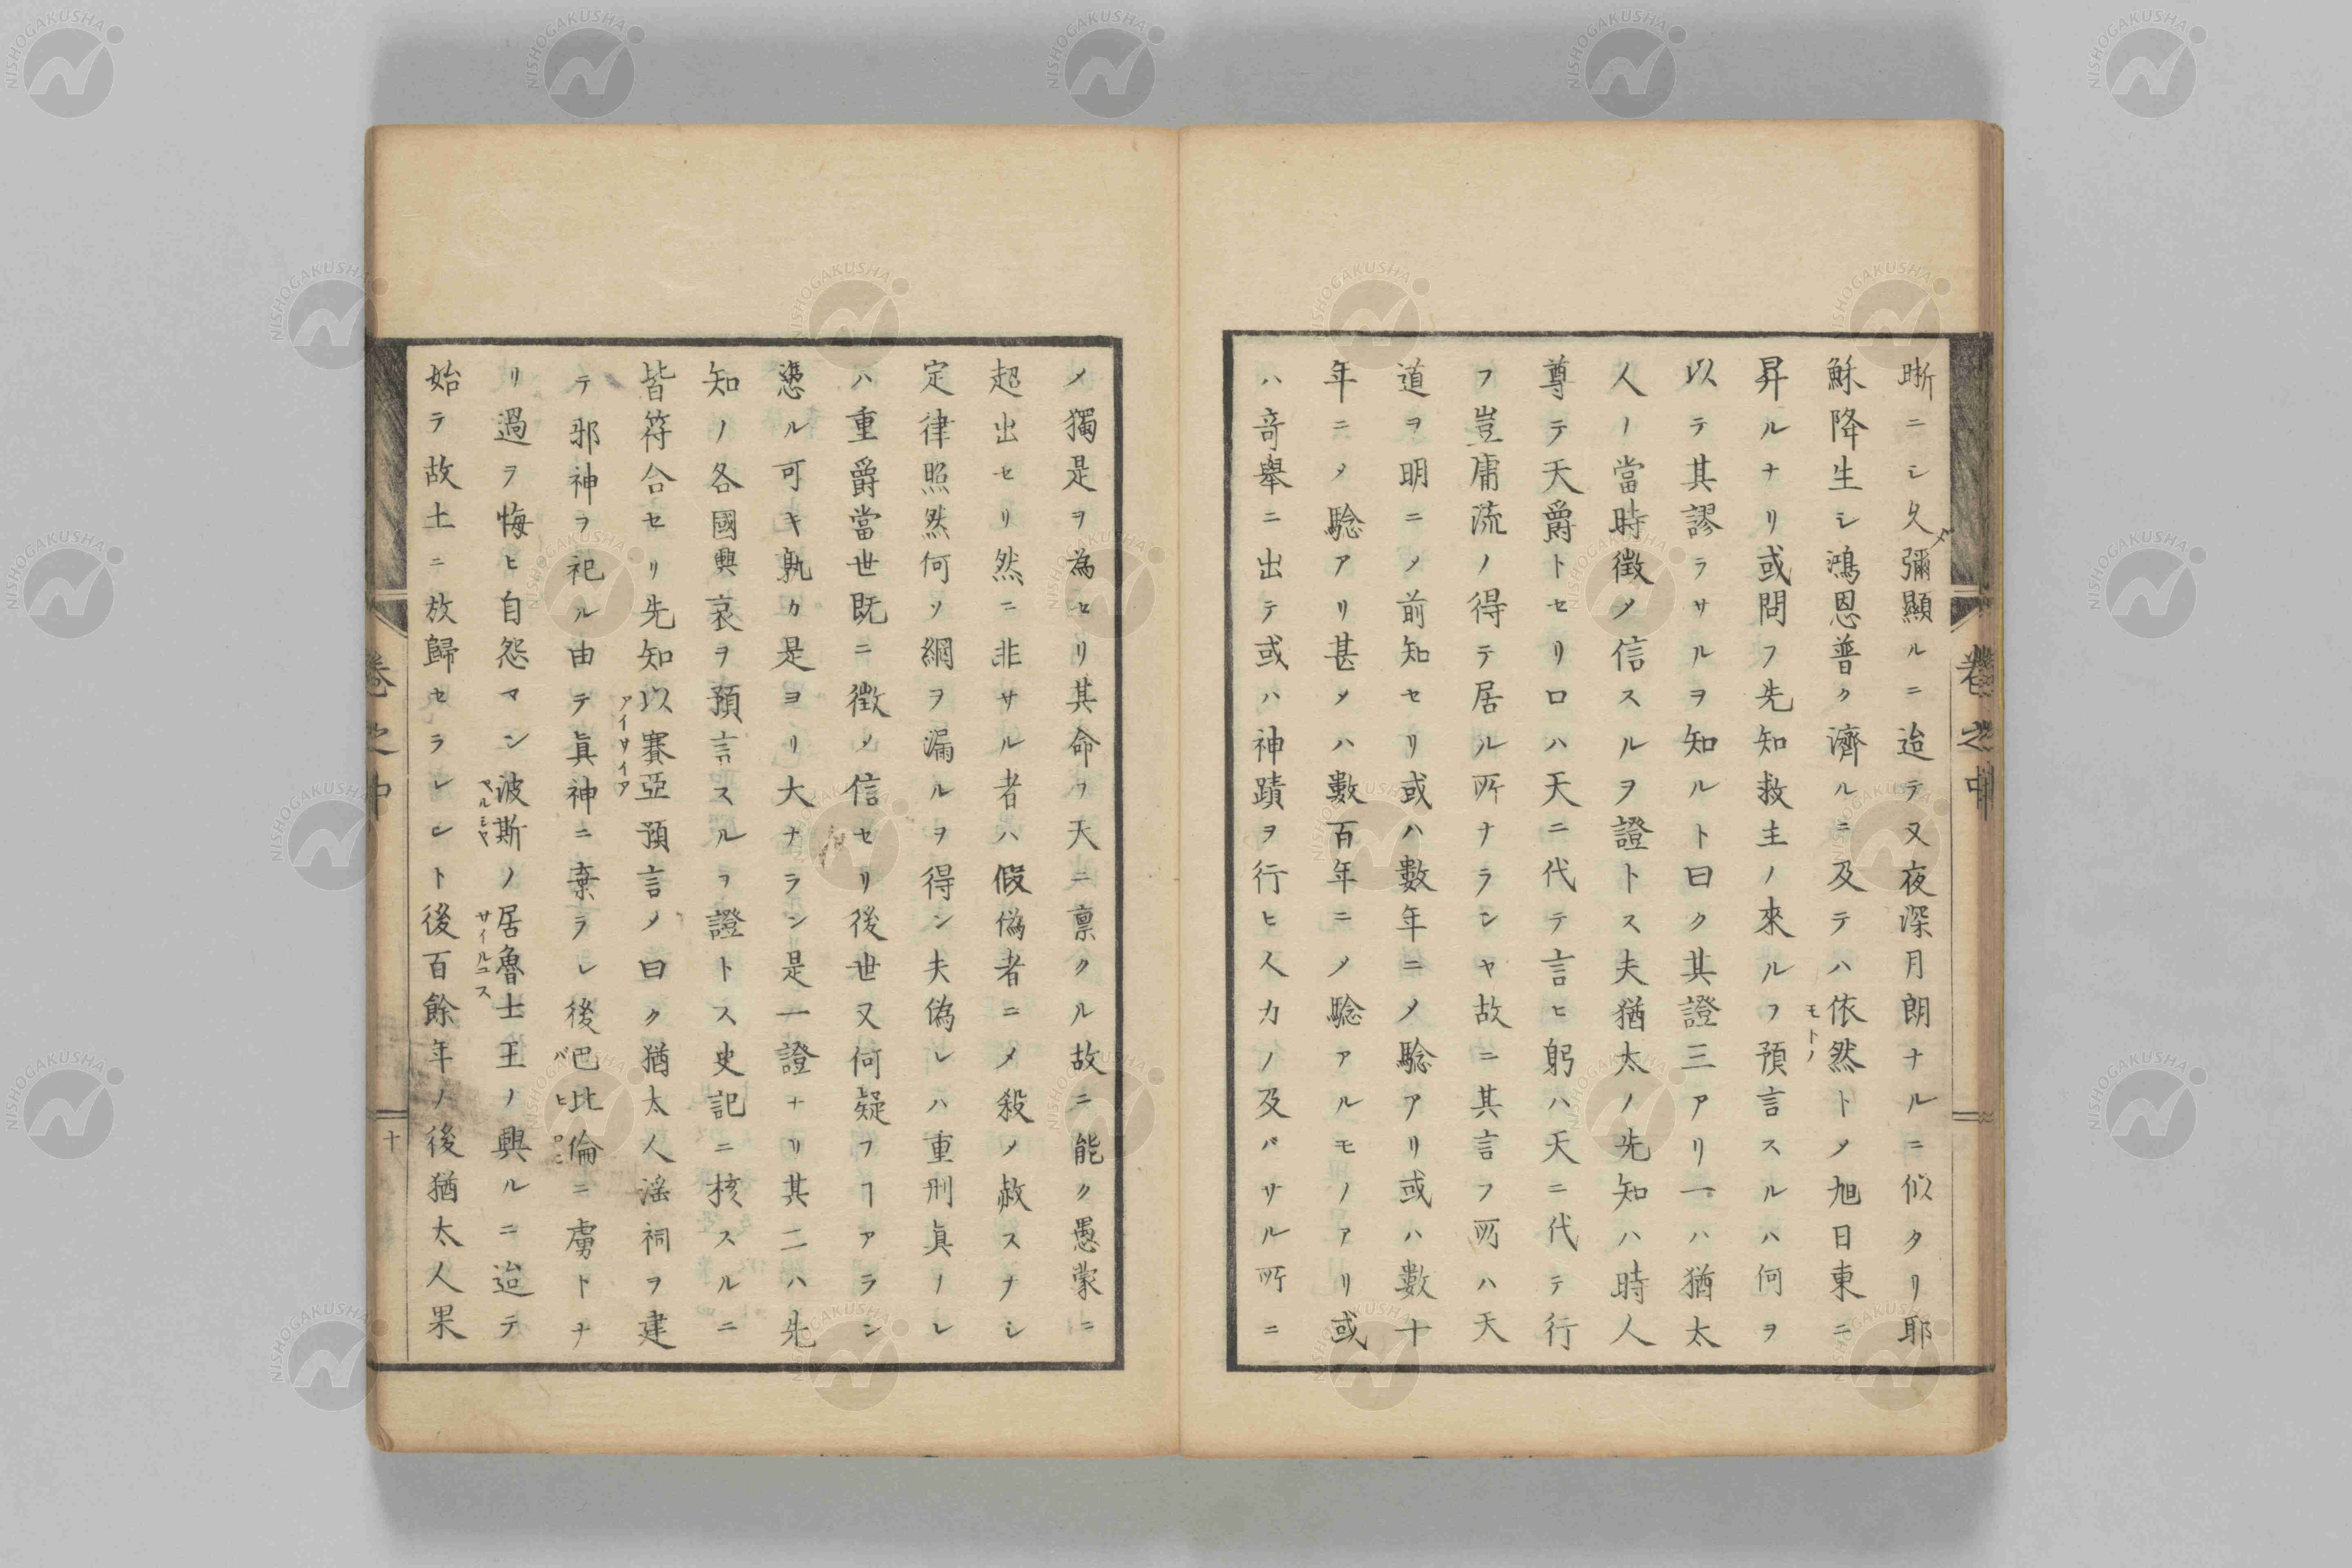 晰ニシ久彌顯ルニ迨テ又夜深月朗ナルニ似タリ耶
穌降生シ鴻恩普ク濟ルニ及テハ依然トメ旭日東ニ
モトノ
昇ルナリ或問フ先知救主ノ來ルヿヲ預言スルハ何ヲ
以テ其謬ラサルヲ知ルト曰ク其證三アリ一ハ猶太
人ノ當時徴メ信スルヲ證トス夫猶太ノ先知ハ時人
尊テ天爵トセリ口ハ天ニ代テ言ヒ躬ハ天ニ代テ行
フ豈庸流ノ得テ居ル所ナランヤ故ニ其言フ所ハ天
道ヲ明ニメ前知セリ或ハ數年ニメ騐アリ或ハ數十
年ニメ騐アリ甚メハ數百年ニメ騐アルモノアリ或
ハ竒舉ニ出テ或ハ神蹟ヲ行ヒ人力ノ及バサル所ニ
卷之中
メ獨是ヲ為セリ其命ヲ天ニ禀クル故ニ能ク愚蒙ニ
超出セリ然ニ非サル者ハ假偽者ニメ殺メ赦スナシ
定律照然何ソ網ヲ漏ルヲ得ン夫偽レハ重刑眞ノレ
ハ重爵當世既ニ徴メ信セリ後世又何疑フヿアラン
憑ル可キ孰カ是ヨリ大ナラン是一證ナリ其二ハ先
知ノ各國興衰ヲ預言スルヲ證トス史記ニ核スルニ
皆符合セリ先知以賽亞預言メ曰ク猶太人滛祠ヲ建
アイサイア
テ邪神ヲ祀ル由テ眞神ニ棄ラレ後巴比倫ニ虜トナ
バヒロニ
リ過ヲ悔ヒ自怨マン波斯ノ居魯士王ノ興ルニ迨テ
ペルシヤ
サイルユス
始テ故土ニ放歸セラレント後百餘年ノ後猶太人果
卷之中
十
NISHOGAKUSHA